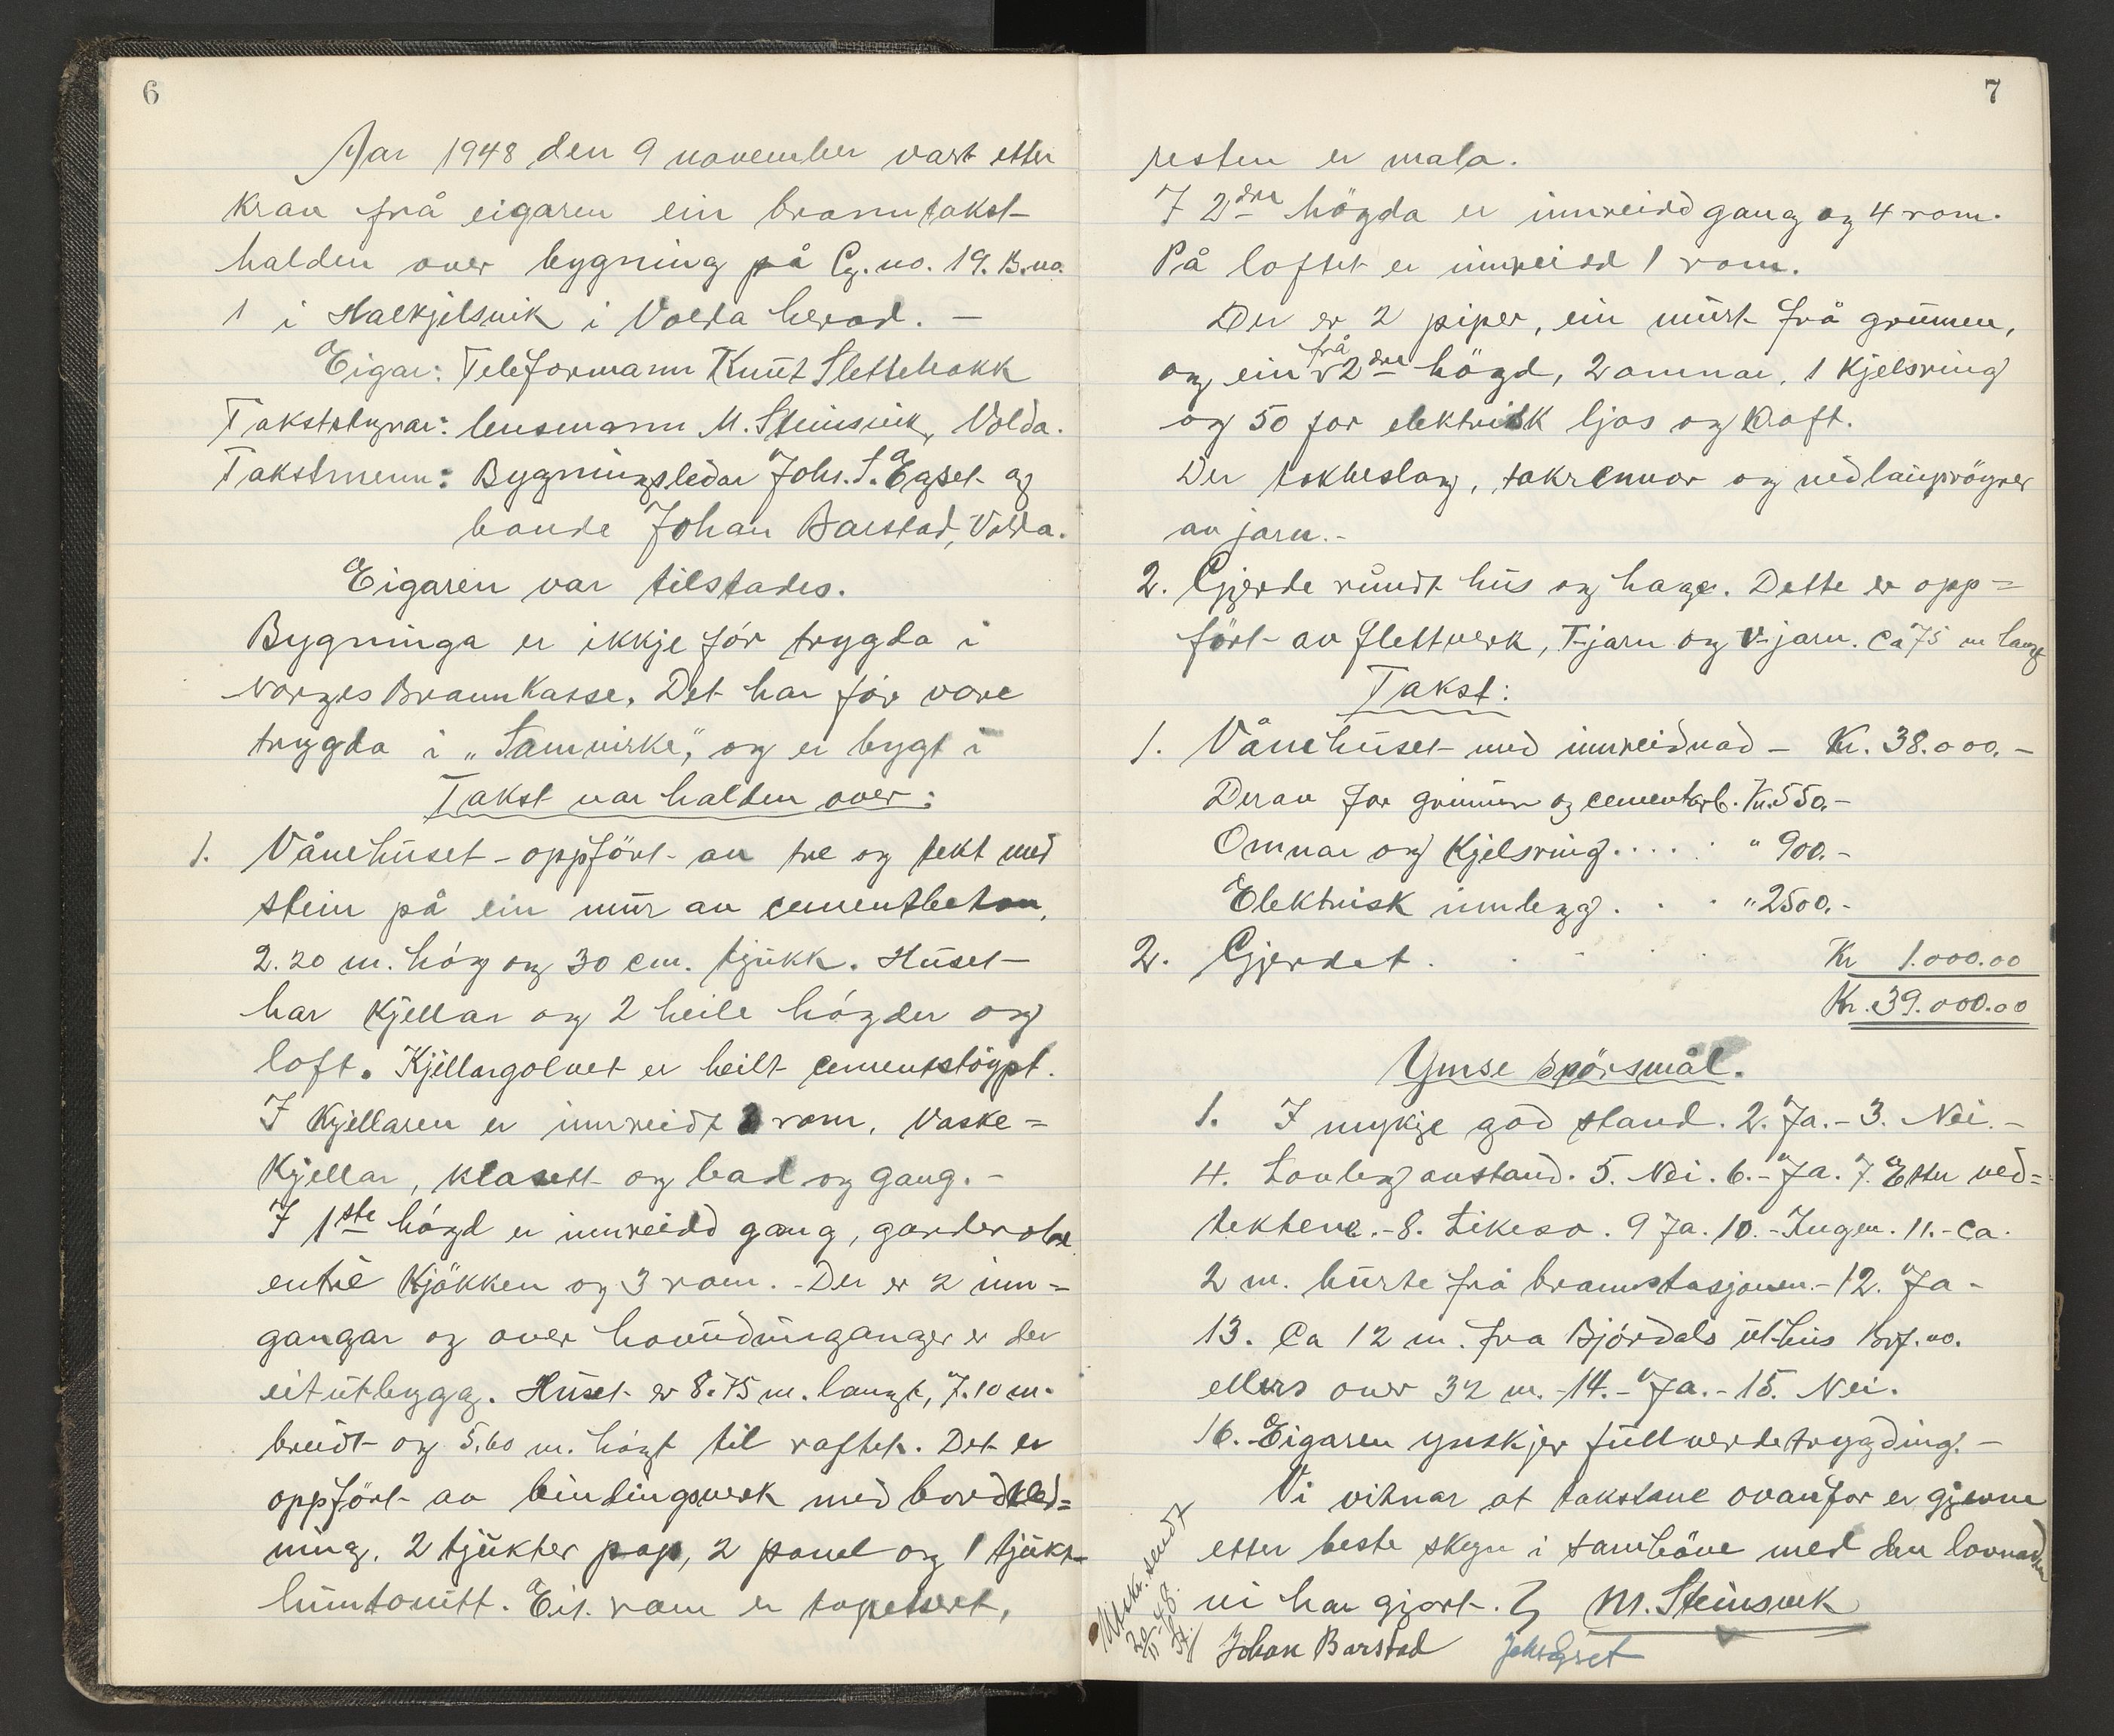 6
Aar 1948 den 9 november vart etter
krav frå eigaren ein branntakst
halden over bygning på G.no. 19. B.no.
1 i Halkjelsvik i Volda herad. —
Eigar: Teleformann Knut Slettebakk
Takststyrar: lensmann M. Steinsvik, Volda.
Takstmenn: Bygningsleidar Johs. S. Egset og
bonde Johan Barstad, Volda.
Eigaren var tilstades.
Bygninga er ikkje før trygda i
Norges Brannkasse. Det har før vore
trygda i „Samvirke", og er bygt i
Takst var halden over:
1. Vånehuset - oppført av tre og tekt med
stein på ein mur av cementbeton,
2.20 m. høg og 30 cm. tjukk. Huset
har kjellar og 2 heile høgder og
loft. Kjellargolvet er heilt cementstøypt.
I kjellaren er innreidt 3 rom, vaske=
kjellar, klosett og bad og gang. -
I 1ste høgd er innreidd gang, garderobe
entré kjøkken og 3 rom. - Der er 2 inn=
gangar og over hovudinnganger er der
eit utbygg. Huset er 8.75 m. langt, 7.10 m.
breidt og 5.60 m. høgt til raftet. Det er
oppført av bindingsverk med bordkled=
ning, 2 tjukter pap, 2 panel og 1 tjukt
huntonitt. Eit rom er tapetsert,
7
resten er mala.
I 2dre høgda er innreidd gang og 4 rom.
På loftet er innreidd 1 rom.
Der er 2 piper, ein murt frå grunnen,
og ein frå 2dre høgd, 2 omnar, 1 kjelsring
og 50 for elektrisk ljos og kraft.
Der takbeslag, takrennor og nedlaupsrøyrer
av jarn. -
2. Gjerde rundt hus og hage. Dette er opp=
ført av flettverk, T-jarn og V-jarn. Ca 75 m lang
Takst:
1. Våne­huset med innreidnad - Kr. 38.000. -
Derav for grunnen og cementarb. Kr. 550. -
Omnar og kjelsring . . . . . " 900. -
Elektrisk innlegg . . . " 2500. -
2. Gjerdet . . . . . Kr 1.000.00
Kr. 39.000.00
Ymse spørsmål.
1. I mykje god stand. 2. Ja. - 3. Nei. -
4. Lovleg avstand. 5. Nei. 6. - Ja. 7. Etter ved=
tektene. - 8. Likeso. 9 Ja. 10. - Ingen. 11. - Ca.
2 m. burte frå brannstasjonen. - 12. Ja -
13. Ca 12 m. fra Bjørdals uthus Brf. no.
ellers over 32 m. - 14. - Ja. - 15. Nei.
16. Eigaren ynskjer fullverdetrygding. -
Vi vitnar at takstane ovanfor er gjevne
etter beste skyn i samhøve med den lovnaden
vi har gjort. M. Steinsvik
Johan Barstad Johs Egset
Utskr. sendt
20/11-48.
St.